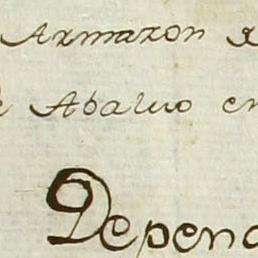 Armazon
Abaluo en
Depend